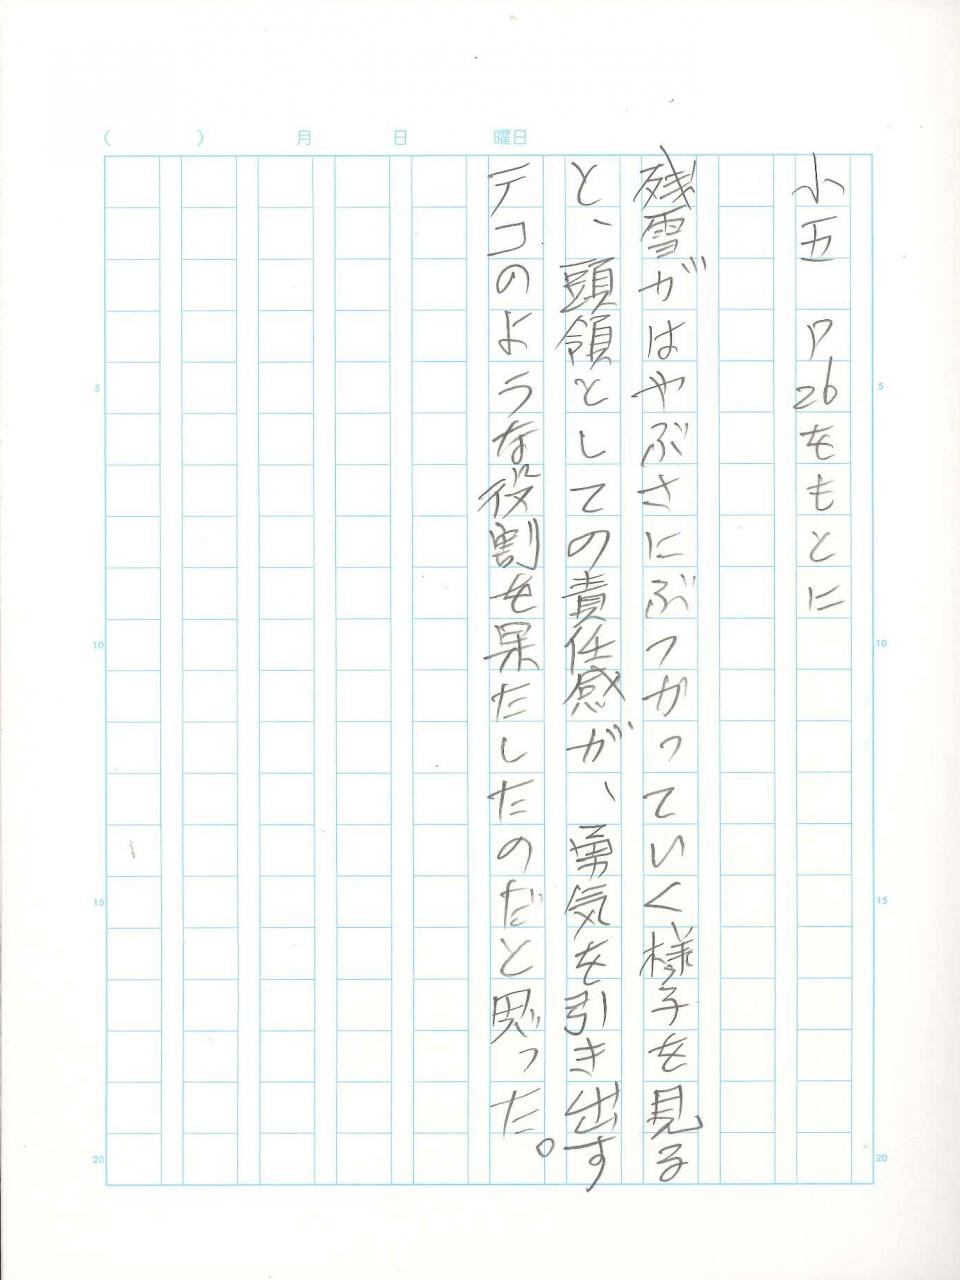 (　　)　月　日　曜日
小五　P26をもとに
残雪がはやぶさにぶつかっていく様子を見る
と、頭領としての責任感が、勇気を引き出す
テコのような役割を果たしたのだと思った。
5
10
15
20
5
10
15
20